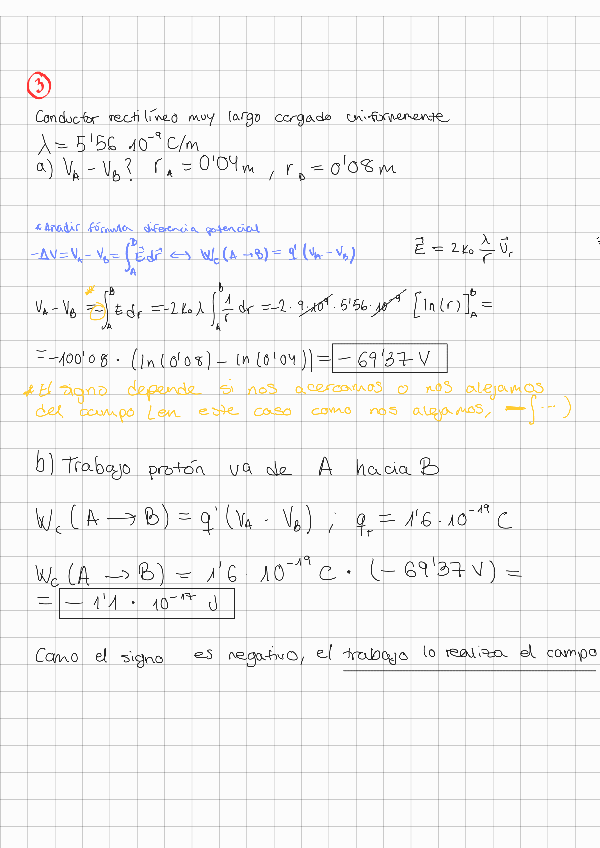 3
Conductor rectilíneo muy largo cargado uniformemente
λ = 5'56 · 10⁻⁹ C/m
a) V_A - V_B? r_A = 0'04 m , r_B = 0'08 m
* Añadir fórmula diferencia potencial
-ΔV = V_A - V_B = ∫_A^B E⃗ dr⃗ ⟷ W_c (A → B) = q' (V_A - V_B)
E⃗ = 2K₀ λ/r U⃗_r
V_A - V_B = -∫_A^B E dr = -2K₀ λ ∫_A^B 1/r dr = -2 · 9 · 10⁹ · 5'56 · 10⁻⁹ [ln(r)]_A^B =
= -100'08 · (ln(0'08) - ln(0'04)) = -69'37 V
* El signo depende si nos acercamos o nos alejamos
del campo (en este caso como nos alejamos, -∫ ... )
b) Trabajo protón va de A hacia B
W_c (A → B) = q' (V_A - V_B) ; q_r = 1'6 · 10⁻¹⁹ C
W_c (A → B) = 1'6 · 10⁻¹⁹ C · (-69'37 V) =
= -1'1 · 10⁻¹⁷ J
Como el signo es negativo, el trabajo lo realiza el campo